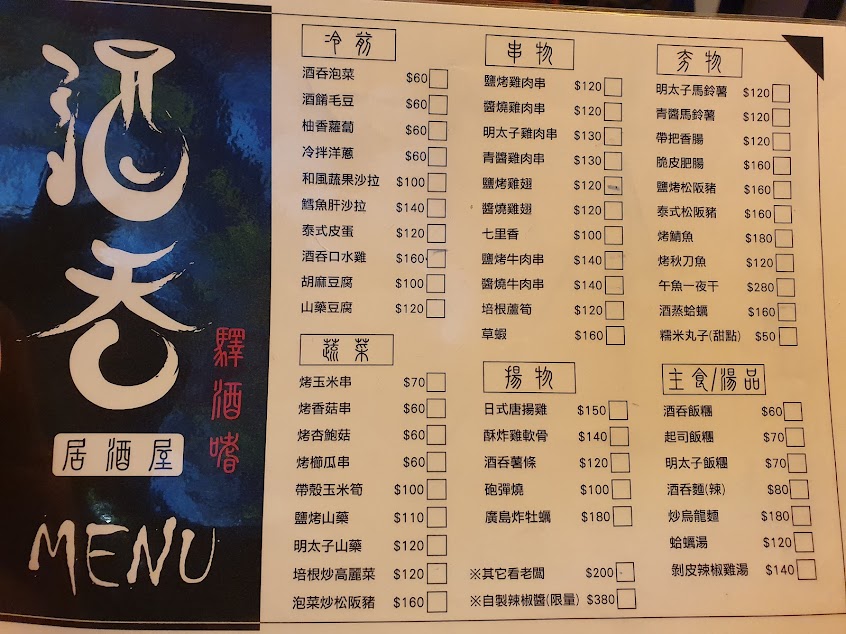 酒吞
驛酒嗜
居酒屋
MENU
冷前
酒吞泡菜 $60
酒餚毛豆 $60
柚香蘿蔔 $60
冷拌洋蔥 $60
和風蔬果沙拉 $100
鱈魚肝沙拉 $140
泰式皮蛋 $120
酒吞口水雞 $160
胡麻豆腐 $100
山藥豆腐 $120
蔬菜
烤玉米串 $70
烤香菇串 $60
烤杏鮑菇 $60
烤櫛瓜串 $60
帶殼玉米筍 $100
鹽烤山藥 $110
明太子山藥 $120
培根炒高麗菜 $120
泡菜炒松阪豬 $160
串物
鹽烤雞肉串 $120
醬燒雞肉串 $120
明太子雞肉串 $130
青醬雞肉串 $130
鹽烤雞翅 $120
醬燒雞翅 $120
七里香 $100
鹽烤牛肉串 $140
醬燒牛肉串 $140
培根蘆筍 $120
草蝦 $160
揚物
日式唐揚雞 $150
酥炸雞軟骨 $140
酒吞薯條 $120
砲彈燒 $100
廣島炸牡蠣 $180
※其它看老闆 $200
※自製辣椒醬(限量) $380
夯物
明太子馬鈴薯 $120
青醬馬鈴薯 $120
帶把香腸 $120
脆皮肥腸 $160
鹽烤松阪豬 $160
泰式松阪豬 $160
烤鯖魚 $180
烤秋刀魚 $120
午魚一夜干 $280
酒蒸蛤蠣 $160
糯米丸子(甜點) $50
主食/湯品
酒吞飯糰 $60
起司飯糰 $70
明太子飯糰 $70
酒吞麵(辣) $80
炒烏龍麵 $180
蛤蠣湯 $120
剝皮辣椒雞湯 $140